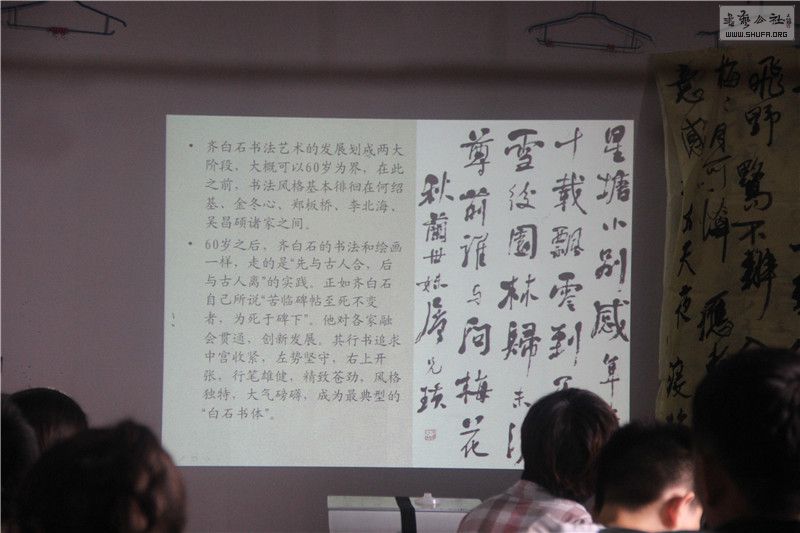 書藝公社
WWW.SHUFA.ORG
• 齐白石书法艺术的发展划成两大
阶段，大概可以60岁为界，在此
之前，书法风格基本徘徊在何绍
基、金冬心、郑板桥、李北海、
吴昌硕诸家之间。
• 60岁之后，齐白石的书法和绘画
一样，走的是“先与古人合，后
与古人离”的实践。正如齐白石
自己所说“苦临碑帖至死不变
者，为死于碑下”。他对各家融
会贯通，创新发展。其行书追求
中宫收紧，左势坚守，右上开
张，行笔雄健，精致苍劲，风格
独特，大气磅礴，成为最典型的
“白石书体”。
星塘小别感年
十载飘零到
雪後園林歸未
尊前谁与问梅花
秋蘭世妹
飛野鷺不辨
梅
天夜